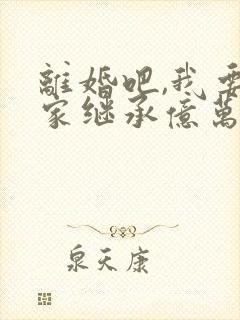 離婚吧,我要
家继承億萬
泉天康